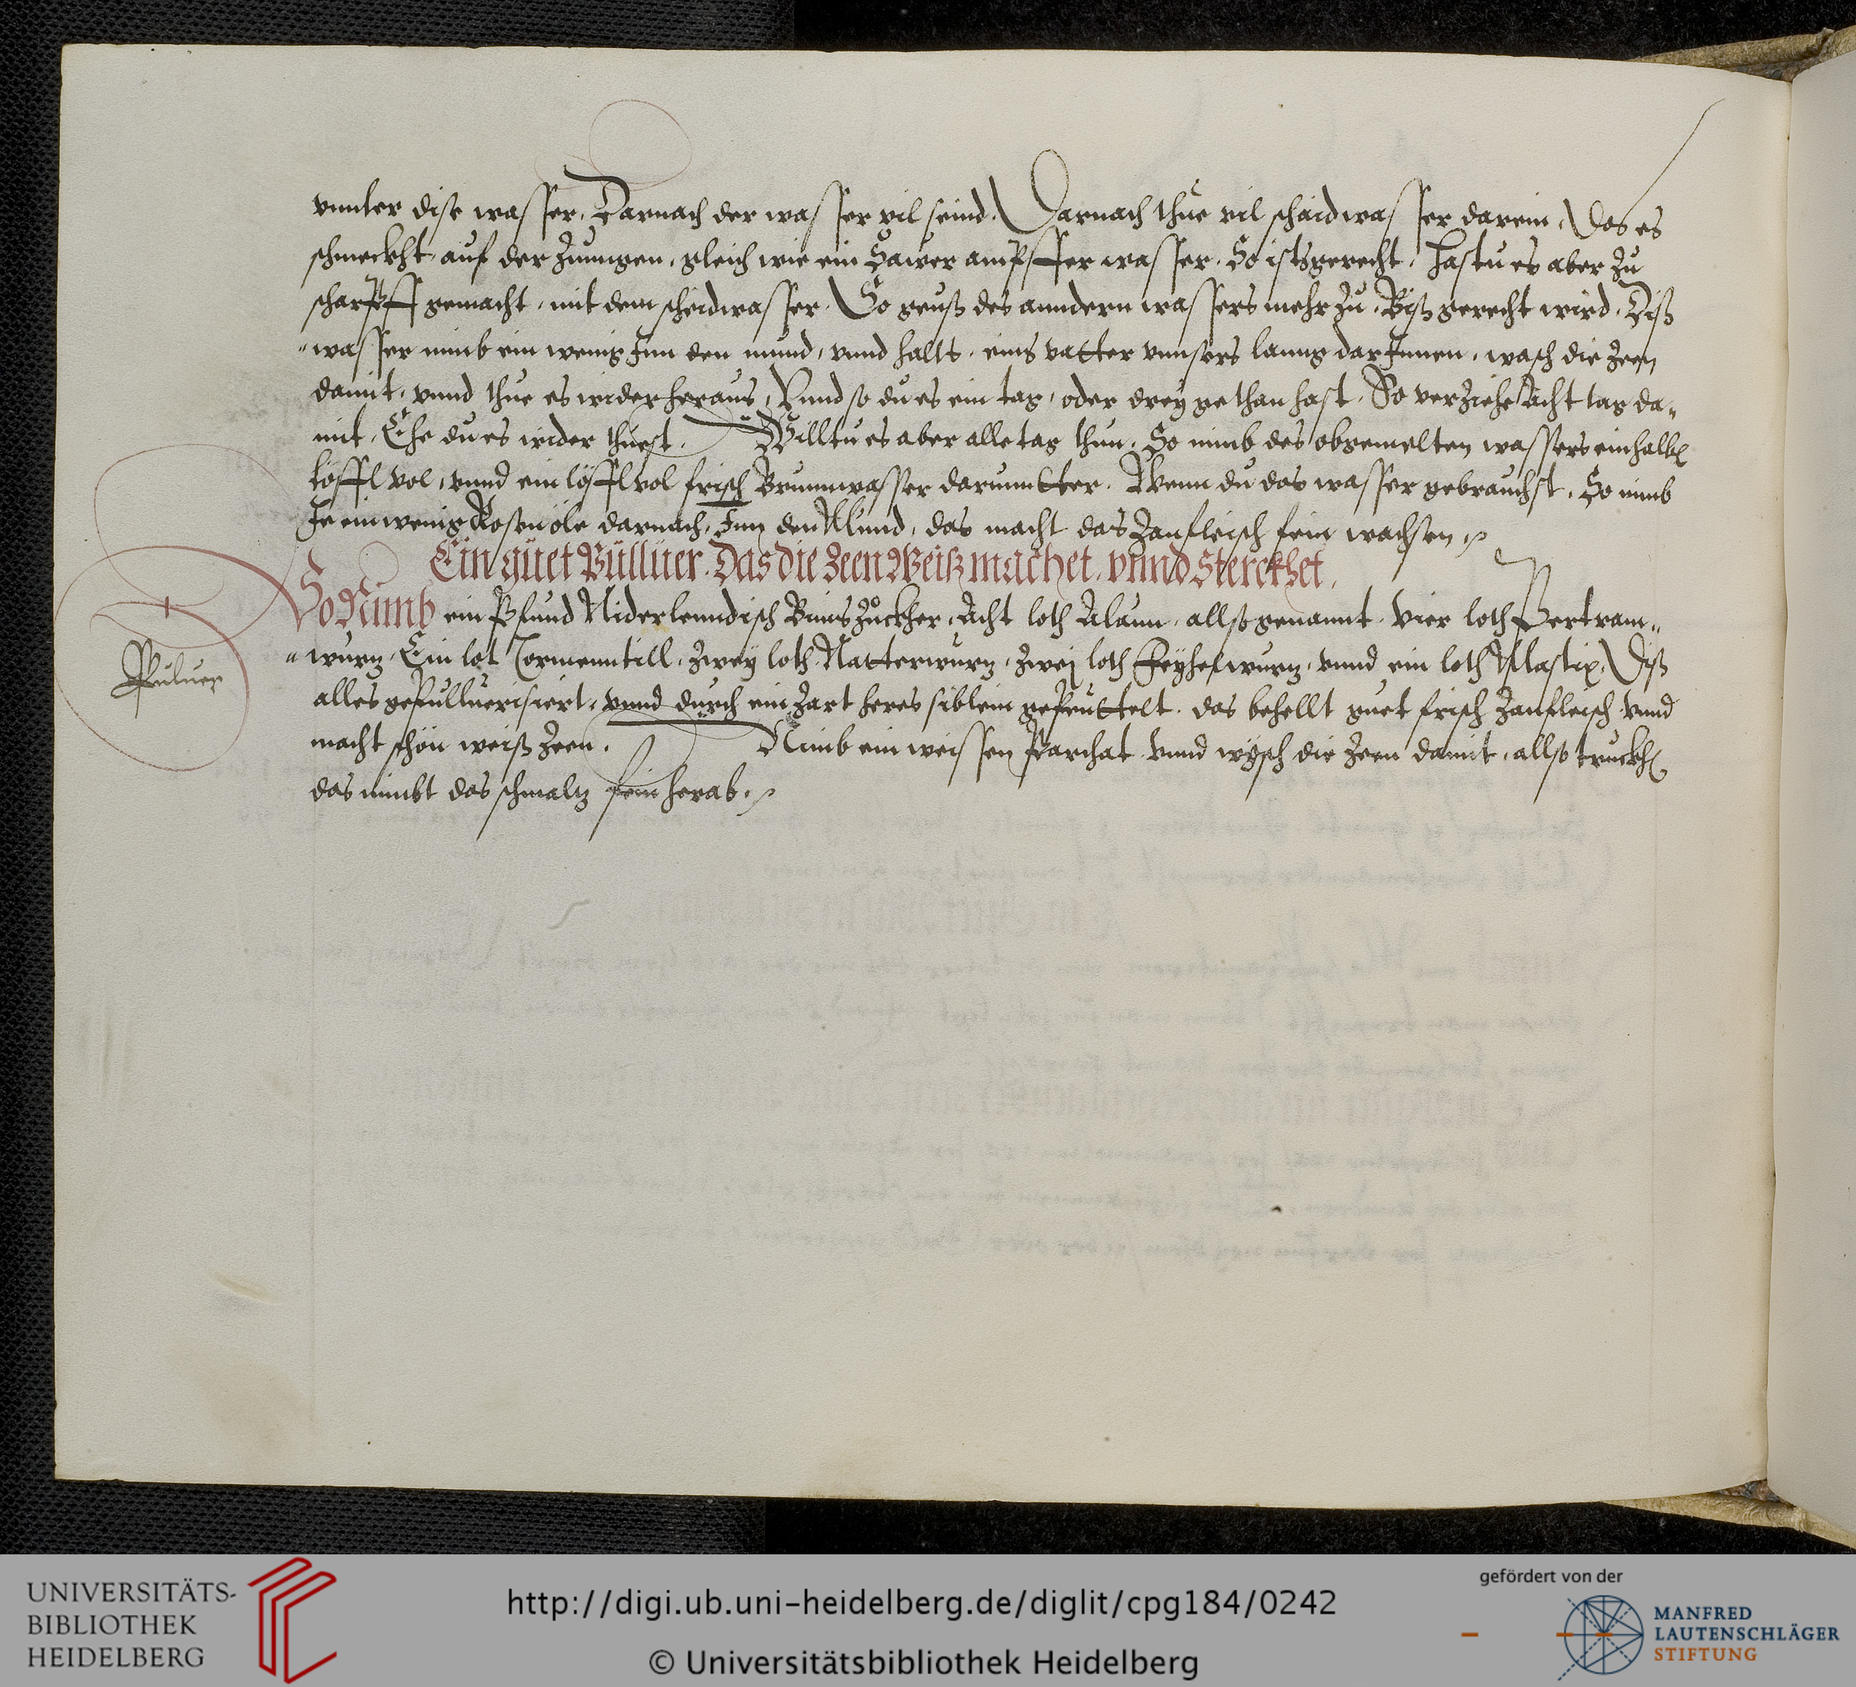 vnnter dise wasser. Darnach der wasser vil seind. Darnach thue vil schaidwasser darein. Das es
schmeckht auf der Zunngen, gleich wie ein Sawer ampffer wasser. So ists gerecht. hastu es aber zu
scharpff gemacht, mit dem scheidwasser. So geuß des anndern wassers mehr zu. Biß gerecht wird. Diß
wasser nimb ein wenig Jnn den mund, vnnd hallt, eins vatter vnnsers lanng darJnnen, wasch die Zeen
damit, vnnd thue es wider heraus. Vnnd so du es ein tag, oder drey gethan hast. So verziehe Acht tag da„
mit. Ehe du es wider thuest. Willtu es aber alle tag thun. So nimb des obgemelten wassers ein halben
löffl vol, vnnd ein löffl vol frisch Brunnwasser darunntter. Wenn du das wasser gebrauchst. So nimb
Je ein wenig Rosenöle darnach, Jnn den Mund, das macht das Zanfleisch fein wachsen.
Ein guet Pulluer. Das die Zeen Weiß machet. vnnd Sterckhet.
So Nimb ein Pfund Niderlenndisch Zuckher, Acht loth Alaun, allso genannt. Vier loth Pertram„
„wurz, Ein lot Tormenntill, Zwey loth Natterwurz, Zwej loth wurz, vnnd ein loth Mastix. Diß
Puluer
alles gepulluerisiert, vnnd durch ein Zart heres siblein gepeuttelt. das behellt guet frisch Zanfleisch vnnd
macht schön weiß Zeen. Nimb ein weissen Parchat vnnd wysch die Zeen damit, allso truckhen
das nimbt das schmaltz fein herab.
UNIVERSITÄTS-
BIBLIOTHEK
HEIDELBERG
http://digi.ub.uni-heidelberg.de/diglit/cpg184/0242
© Universitätsbibliothek Heidelberg
gefördert von der
MANFRED
LAUTENSCHLÄGER
STIFTUNG